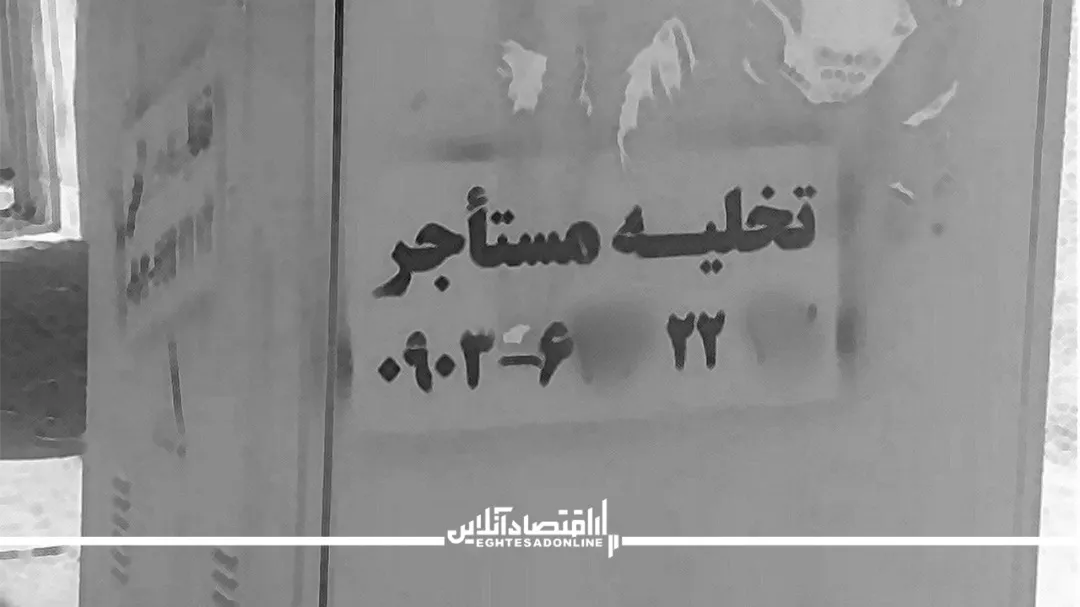 تخلیه مستأجر
۰۹۰۳-۶ ۲۲
اقتصادآنلاین
EGHTESADONLINE